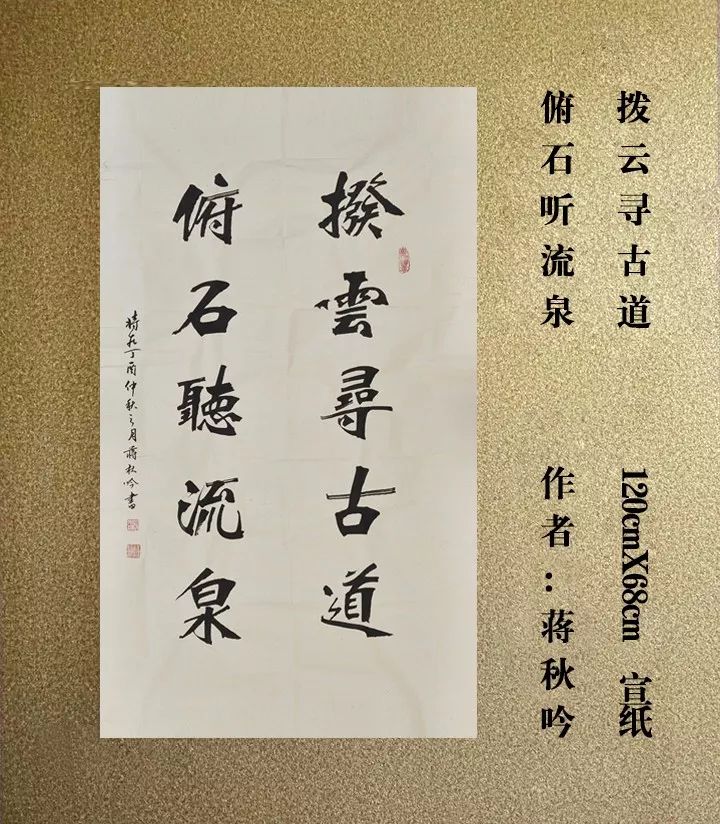 拨云寻古道
俯石听流泉
120cmX68cm 宣纸
作者：蒋秋吟
撥雲尋古道
俯石聽流泉
時在丁酉仲秋之月蔣秋吟書